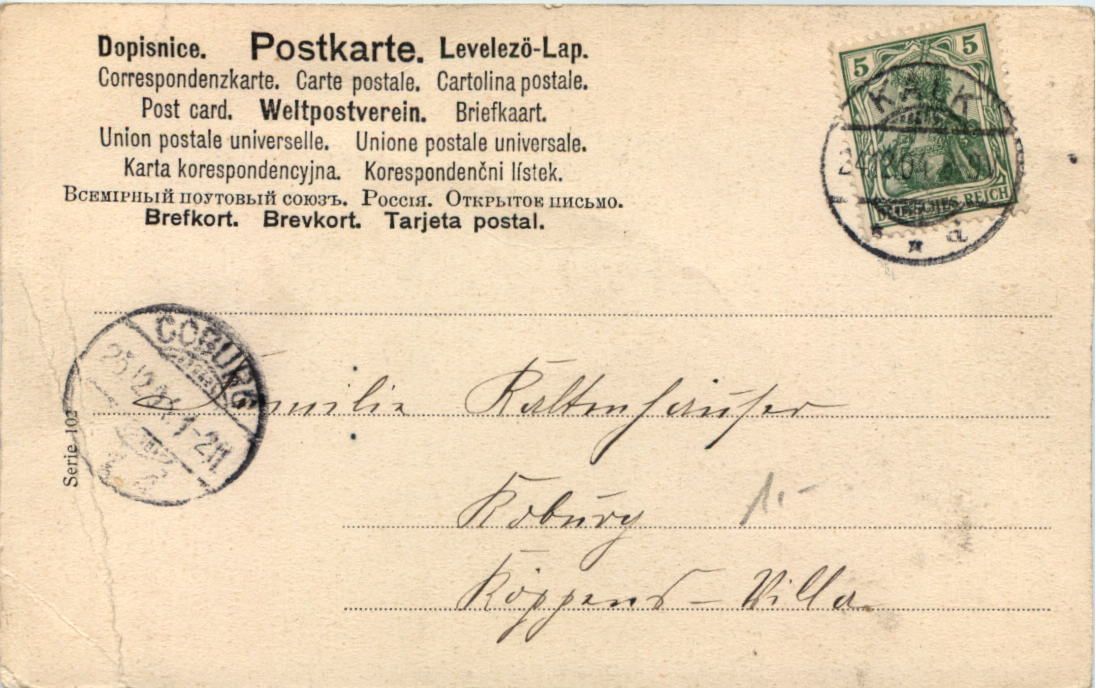 Dopisnice. Postkarte. Levelezö-Lap.
Correspondenzkarte. Carte postale. Cartolina postale.
Post card. Weltpostverein. Briefkaart.
Union postale universelle. Unione postale universale.
Karta korespondencyjna. Korespondenčni lístek.
Всемірный поутовый союзъ. Россія. Открытое письмо.
Brefkort. Brevkort. Tarjeta postal.
5 5
DEUTSCHES REICH
KALK
COBURG
1-2N
Serie 102
Familie Kaltenhäuser
Koburg
1.-
Köppens-Villa